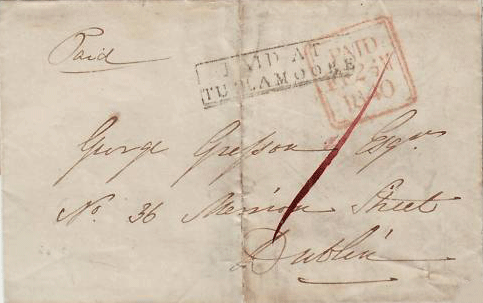 Paid
PAID AT
TULLAMOORE
PAID
1840
George Gresson Esqr
No. 36 Merrion Street
Dublin